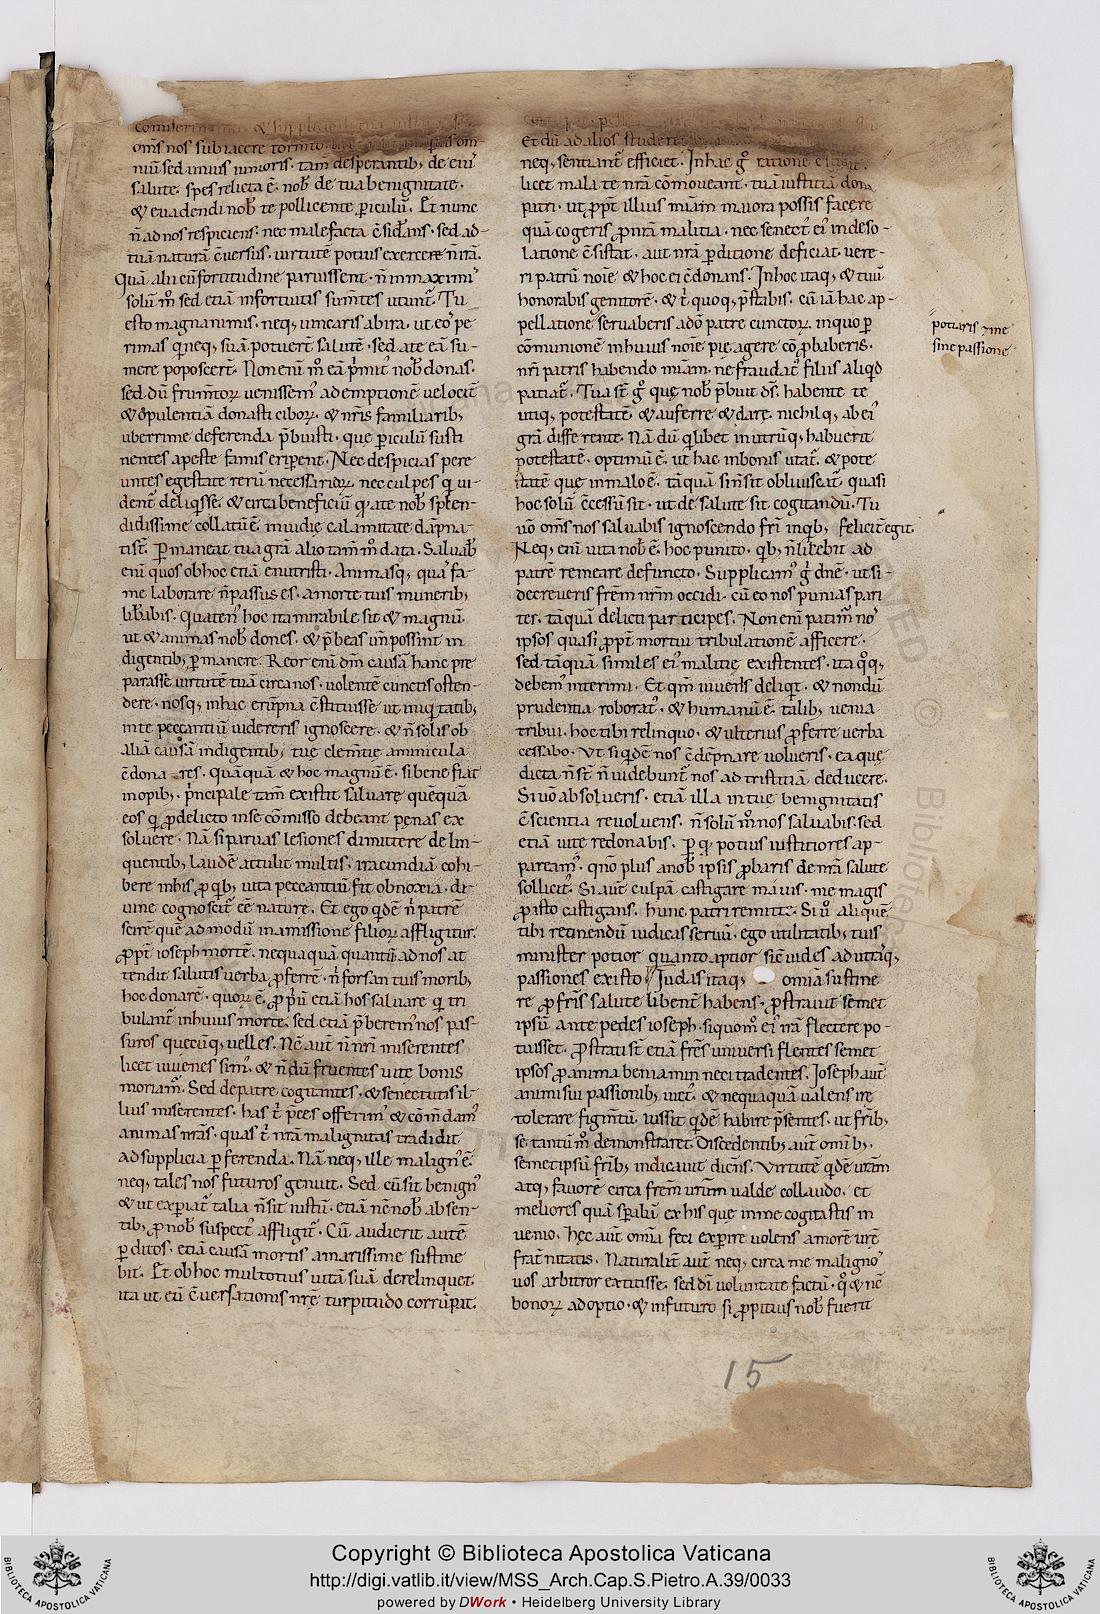 om̅s nos subiacere tormto
niu sed unius iunioris. tam̅ desperantib; de eiu'
salute. spes relicta ē. nob̅ de tua benignitate.
& euadendi nob̅ te pollicente periculū. Et nunc
n̅ ad nos respiciens. nec malefacta c̅sid̅ans. sed ad-
tuā naturā c̅uersus. uirtute potius exercere n̅ irā.
Quā alii eū fortitudine
solū m̅o sed etiā infortuitis sum̅tes utunt̅. Tu
esto magnanimis. neq; uincaris ab ira. ut eos pe
rimas qi neq; suā potuert̅ salutē. sed a te eā su-
mere poposcert̅. Non eni m̅ eā p̅mit' nob̅ donas.
sed dū frumtorꝝ venissem' ad emptionē velociť
& opulentiā donasti ciborꝝ. & nr̅is familiarib;
uberrime deferenda p̅buisti. que periculū susti
nentes a peste famis eriperent. Nec despicias pere
untes egestate rerū necessariorꝝ. nec culpes qi ui-
dent̅ deliqisse. & circa beneficiū qd a te nob̅ splen-
didissime collatū ē. inuidię calamitate dāpna-
ti st̅. Permaneat tua gr̅a alio tam̅ m̅o data. Saluab̅
eni quos ob hoc etiā enutristi. Animasq; qua' fa-
me laborare n̅ passus es. a morte tuis munerib;
lib̅abis. Quaten' hoc ita mirabile sit & magnū.
ut & animas nob̅ dones. & p̅beas un̅ possint in
digentib; permanere. Reor eni dm̅ causā hanc pre
parasse uirtutē tuā circa nos. uolentē cunctis osten-
dere. nosq; in hac erūpna c̅stituisse ut iniqitatib;
in te peccantiū uidereris ignoscere. & n̅ solis ob
aliā causā indigentib; tuę clem̅tię aminicula
c̅dona res. quāquā & hoc magnū ē. si bene fiat
inopib;. p̅ncipale tam̅ existit saluarę quēquā
eos qi p̅ delicto in se c̅misso debeant pęnas ex
soluere. Nā si paruas lesiones dimittere delin-
quentib; laudē attulit multis. iracundiā cohi-
bere in his p̅ qib; uita peccantiū fit obnoxia. di-
uine cognoscit' c̅e naturę. Et ego qidē n̅ patrē
scirē que admodū in amissione filiorꝝ affligitur.
p̅pt̅ ioseph mortē. nequaquā quantū ad nos at
tendit salutis uerba p̅ferrē. n̅ forsan tuis morib;
hoc donarē. quorꝝ ē. p̅p̅ū etiā hos saluare qi tri
bulant̅ in huius morte. sed etiā p̅berem' nos pas-
suros quecūq; uelles. Nc̅ aut̅ n̅ nr̅i miserentes
licet iuuenes sim'. & n̅dū fruentes uite bonis
moriam'. Sed de patre cogitantes. & senectutis il-
lius miserentes. has t̅ p̅ces offerim' & c̅m̅dam'
animas nr̅as. quas t̅ nr̅a malignitas tradidit
ad supplicia perferenda. Nā neq; ille malign' ē.
neq; tales nos futuros genuit. Sed cū sit benign'
& ut experiat̅ talia n̅ sit iustū. etiā nc̅ nob̅ absen-
tib; p̅ nob̅ suspect' affligit̅. Cū audierit autē
perditos. etiā causā mortis amarissime sustine
bit. Et ob hoc multotius uitā suā derelinquet.
ita ut eū c̅uersationis nr̅ę turpitudo corrūpat.
Et dū ad alios
neq; sentiant̅ efficiet. In hac g̅ ratione
licet mala te nr̅a c̅moueant. tuā iustitiā dona
patri. ut p̅pt̅ illius mīam maiora possis facere
quā cogeris p̅ nr̅a malitia. nec senect' ei' in deso-
latione c̅sistat. aut nr̅a perditione deficiat. uere-
ri patrū noīe & hoc ei c̅donans. In hoc itaq; & tuū
honorabis genitorē. & t̅ quoq; p̅stabis. cū iā hac ap-
pellatione seruaberis a dō patre cunctorꝝ. in quo per
cōmunionē in huius noīe pie agere c̅probaberis.
nr̅i patris habendo mīam. ne fraudat' filiis aliqd
patiat̅. Tua st̅ g̅ que nob̅ p̅buit ds̅. habente te
utiq; potestatē & auferre & dare. nichilq; ab ei'
gr̅a differente. Nā dū qilibet in utrūq; habuerit
potestatē. optimū ē. ut hac in bonis utat̅. & pote
statē que in malo ē. tāquā si n̅ sit obliuiscat̅. quasi
hoc solū c̅cessū sit. ut de salute sit cogitandū. Tu
uō om̅s nos saluabis ignoscendo fr̅i in qib; feliciť egit.
Neq; eni uita nob̅ ē. hoc punito. qib; n̅ licebit ad
patrē remeare defuncto. Supplicam' g̅ dn̅e. ut si-
decreueris fr̅em nr̅m occidi. cū eo nos punias pari
ter. tāquā delicti participes. Non eni patim' no'
ipsos quasi p̅pt̅ mortui tribulationē afficere.
sed tāquā similes ei' malitię existentes. ita qoq;
debem' interimi. Et qm̅ iuuenis deliqit. & nondū
prudentia roborat'. & humanū ē. talib; uenia
tribui. hoc tibi relinquo. & ulterius p̅ferre uerba
cessabo. Ut si qidē nos c̅dēpnare uolueris. ea que
dicta n̅ st̅ n̅ uidebunt̅ nos ad tristitiā deducere.
Si uō absolueris. etiā illa in tue benignitatis
c̅scientia reuoluens. n̅ solū m̅o nos saluabis. sed
etiā uite redonabis. per qd potius iustitiores ap-
paream'. qn̅o plus a nob̅ ipsis p̅baris de nr̅a salute
sollicit'. Si aut̅ culpā castigare mauis. me magis
p̅ isto castigans. hunc patri remitte. Si u̅o aliquē
tibi retinendū iudicas seruū. ego utilitatib; tuis
minister potior quanto aptior sic̅ uides ad utraq;
passiones existo. Judas itaq; omīa sustine
re p̅ fr̅is salute libent̅ habens. p̅strauit semet
ipsū ante pedes ioseph. si quom̅ ei' irā flectere po-
tuisset. P̅strati st̅ etiā fr̅es uniuersi flentes semet
ipsos p̅ anima beniamin neci tradentes. Ioseph aut̅
animi sui passionib; uict'. & nequaquā ualens irę
tolerare figm̅tū. iussit qidē habire p̅sentes. ut fr̅ib;
se tantū m̅o demonstraret. Discedentib; aut̅ omīb;
semetipsū fr̅ib; indicauit dicens. Virtutē qidē ur̅am
atq; fauorē circa fr̅em ur̅um ualde collaudo. et
meliores quā sp̅abā ex his que in me cogitastis in
uenio. hęc aut̅ omīa feci experire uolens amorē ur̅ę
frat̅nitatis. Naturalit̅ aut̅ neq; circa me maligno'
uos arbitror extitisse. sed di̅ uoluntate factū. qd & nc̅
bonorꝝ adoptio. & in futuro si p̅pitius nob̅ fuerit
potiaris
sine passione
15
Copyright © Biblioteca Apostolica Vaticana
http://digi.vatlib.it/view/MSS_Arch.Cap.S.Pietro.A.39/0033
powered by DWork • Heidelberg University Library
BIBLIOTECA APOSTOLICA VATICANA
BIBLIOTECA APOSTOLICA VATICANA